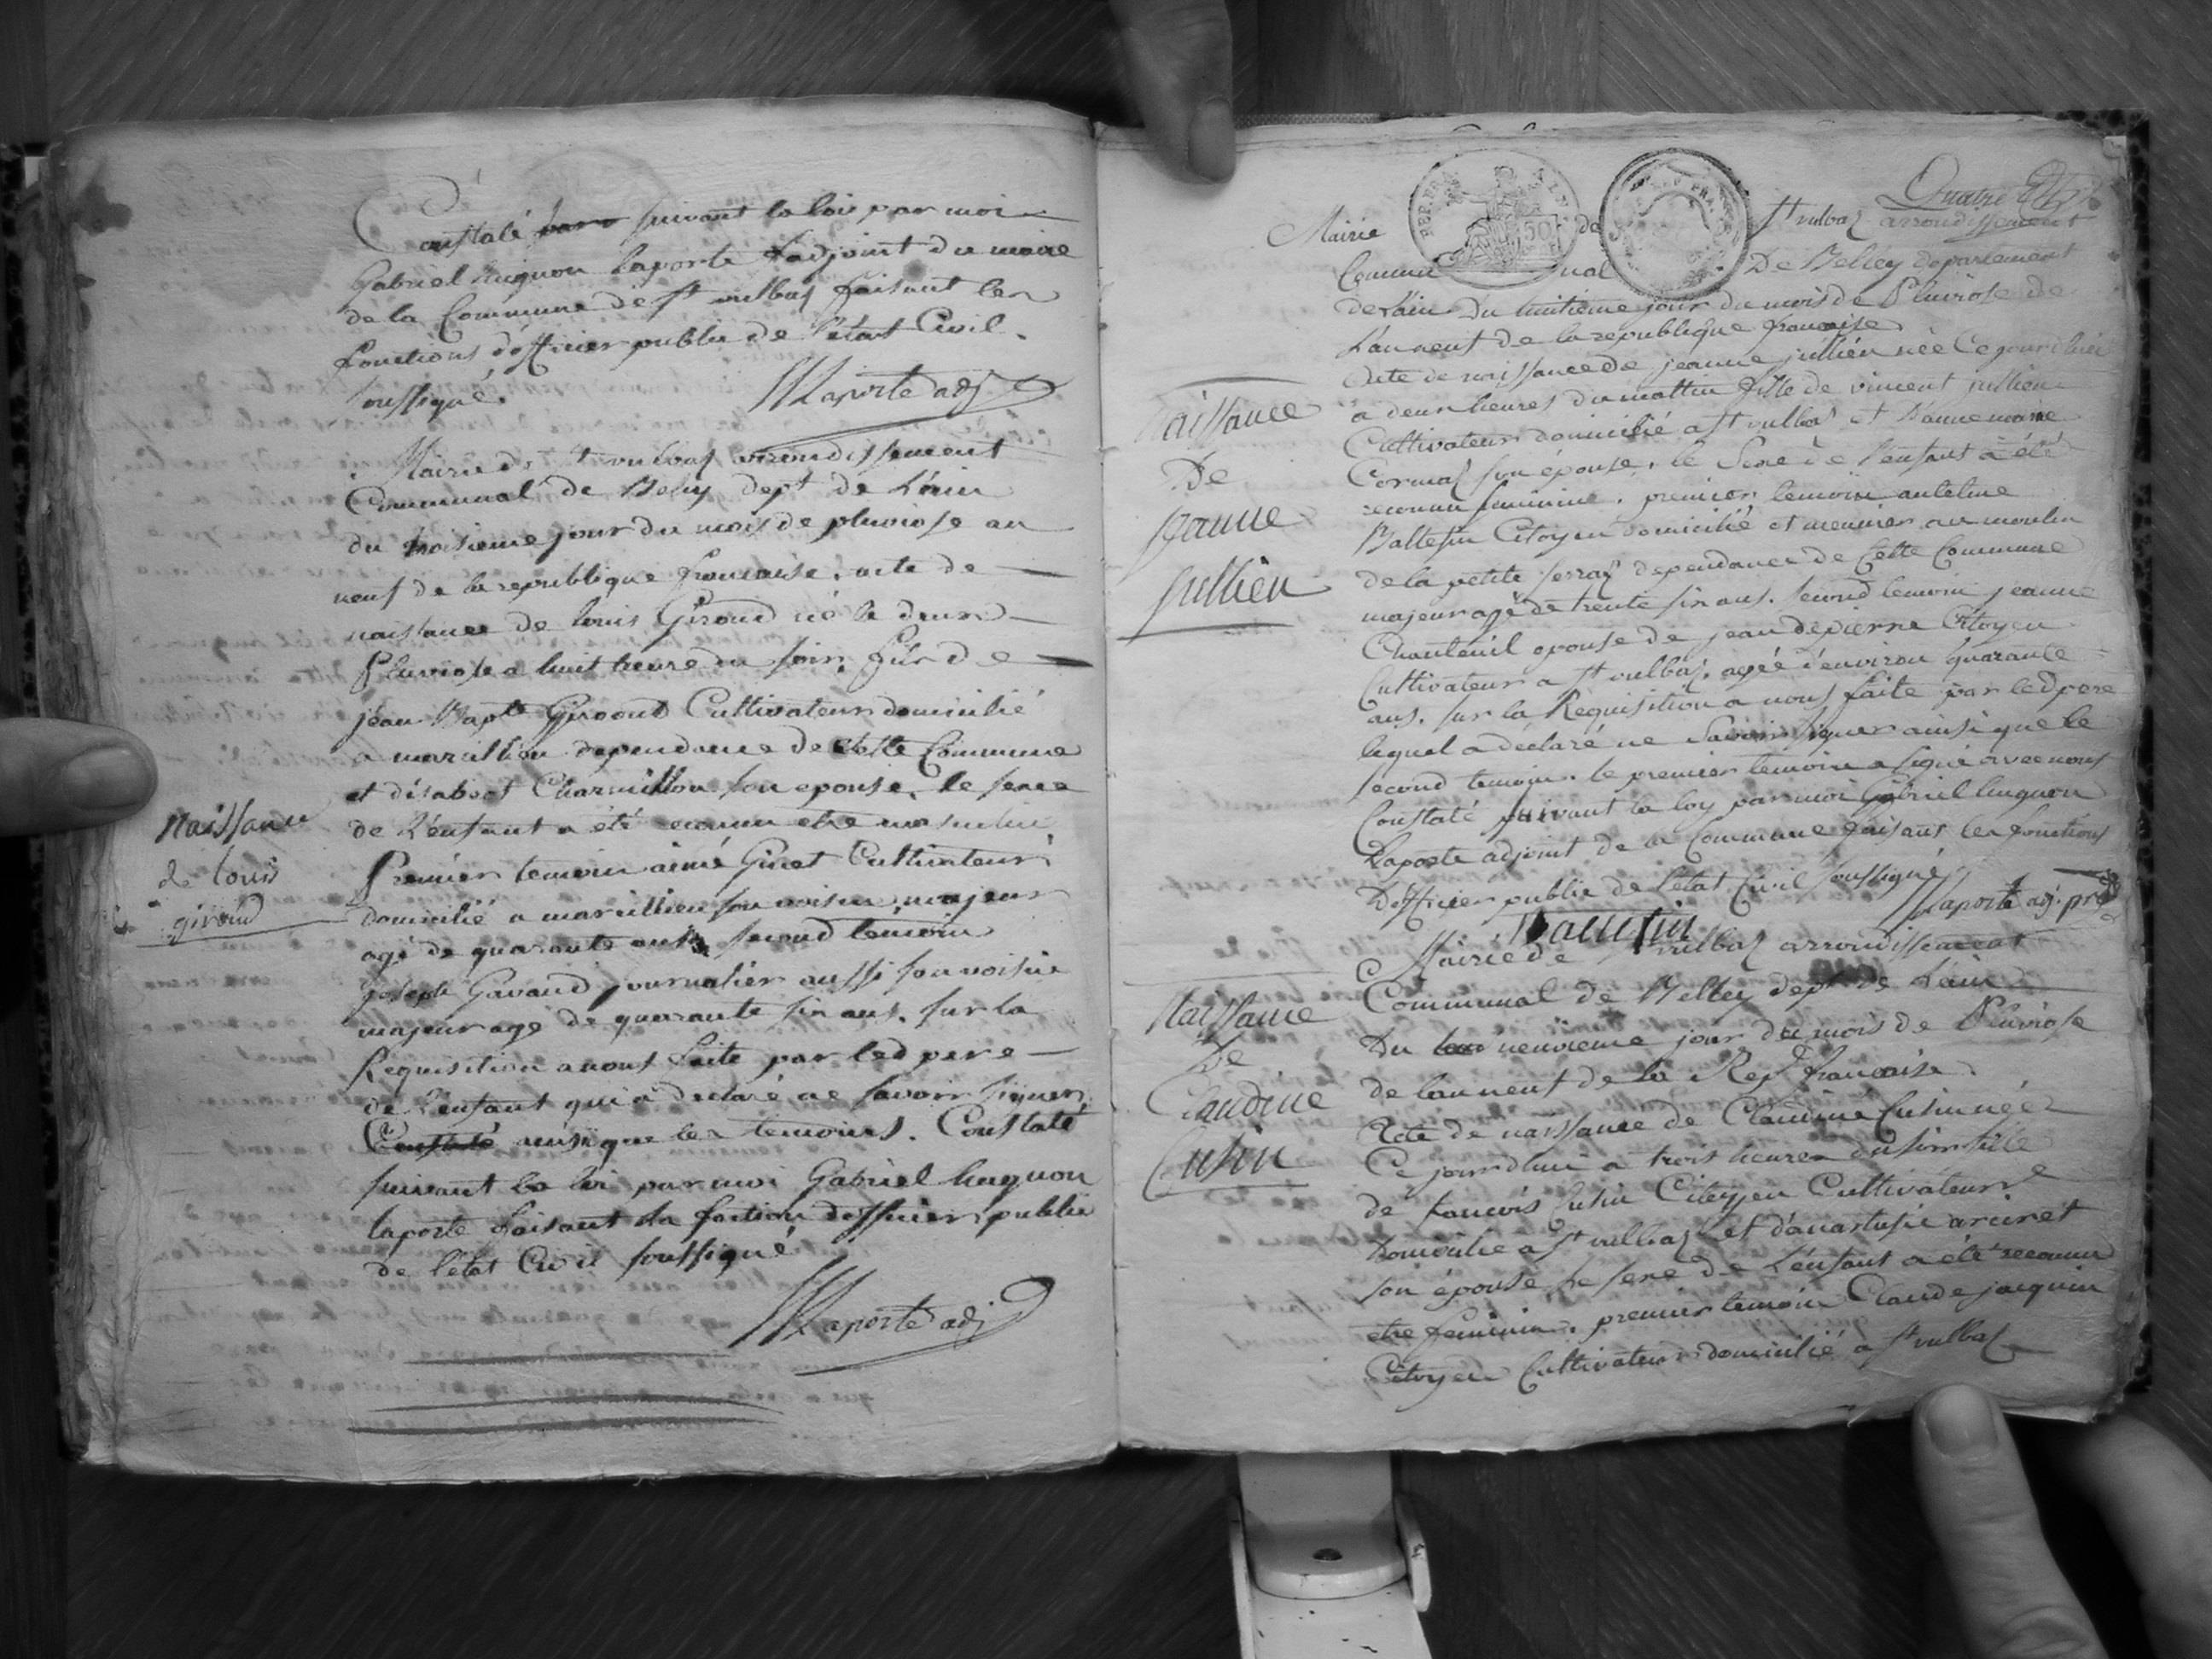 Constaté suivant la loix par moi
Gabriel huguon laporte L'adjoint du maire
de la Commune de St vulbas faisant les
fonctions d'officier public de l'état Civil.
soussigné.
Laporte adj
Mairie de St vulbas arrondissement
Communal de Belley dept de L'ain
du troisieme jour du mois de pluviose an
neuf de la republique francaise. acte de
naissance de louis Giroud né le deux
Pluviose a huit heure du soir, fils de
jean Bapte Giroud Cultivateur domicilié
a marcillieu dependance de Cette Commune
et d'isabeot Charmillon son epouse, le sexe
de L'enfant a été reconnu etre masculin
Naissance
de louis
giroud
Premier temoin aimé Ginet Cultivateur
domicilié a marcillieu son voisin majeur
agé de quarante ans second témoin
joseph Gavaud journalier aussi son voisin
majeur agé de quarante six ans, sur la
Requisition a nous faite par led pere
de L'enfant qui a declaré ne savoir signer
Constaté ainsi que les temoins. Constaté
suivant la loi par moi Gabriel huguon
laporte faisant la fontion d'officier public
de l'état Civil soussigné
Laporte adj
Quatre
Mairie de St vulbas arrondissement
Commu nal De Belley departement
de L'ain Du huitieme jour du mois de Pluviose de
L'an neuf de la republique francaise
Acte de naissance de jeanne jullien née Ce jourd'hui
Naissance
De
jeanne
jullien
a deux heures du mattin fille de vincent jullien
Cultivateur domicilié a St vulbas et d'anne marie
Cormas son épouse, le Sexe de l'enfant a été
reconnu feminine. premier temoin antelme
Ballefin Citoyen domicilié et meunier au moulin
de la petite serraz dependance de Cette Commune
majeur agé de trente six ans. second temoin jeanne
Chanteuil epouse de jean depierre Citoyen
Cultivateur a St vulbas, agée d'environ quarante
ans. sur la Requisition a nous faite par led pere
lequel a déclaré ne Savoir signer ainsi que le
second temoin. le premier temoin a signé avec nous
Constaté suivant la loy par moi Gabriel huguon
Laporte adjoint de la Commune faisant les fonctions
D'officier public de l'état Civil soussigné
Laporte adj. pro
Mairie de St vulbas arrondissement
Communal de Belley dept de L'ain
Naissance
De
Claudine
Cusin
Du neuvieme jour du mois de Pluviose
de l'an neuf de la Rep francaise.
Acte de naissance de Claudine Cusin née
Ce jourd'hui a trois heures du soir fille
de francois Cusin Citoyen Cultivateur
Domicilié a St vulbas et d'anastasie
son épouse Le sexe de L'enfant a été reconnu
etre feminin. premier temoin Claude jacquin
Citoyen Cultivateur domicilié a St vulbas